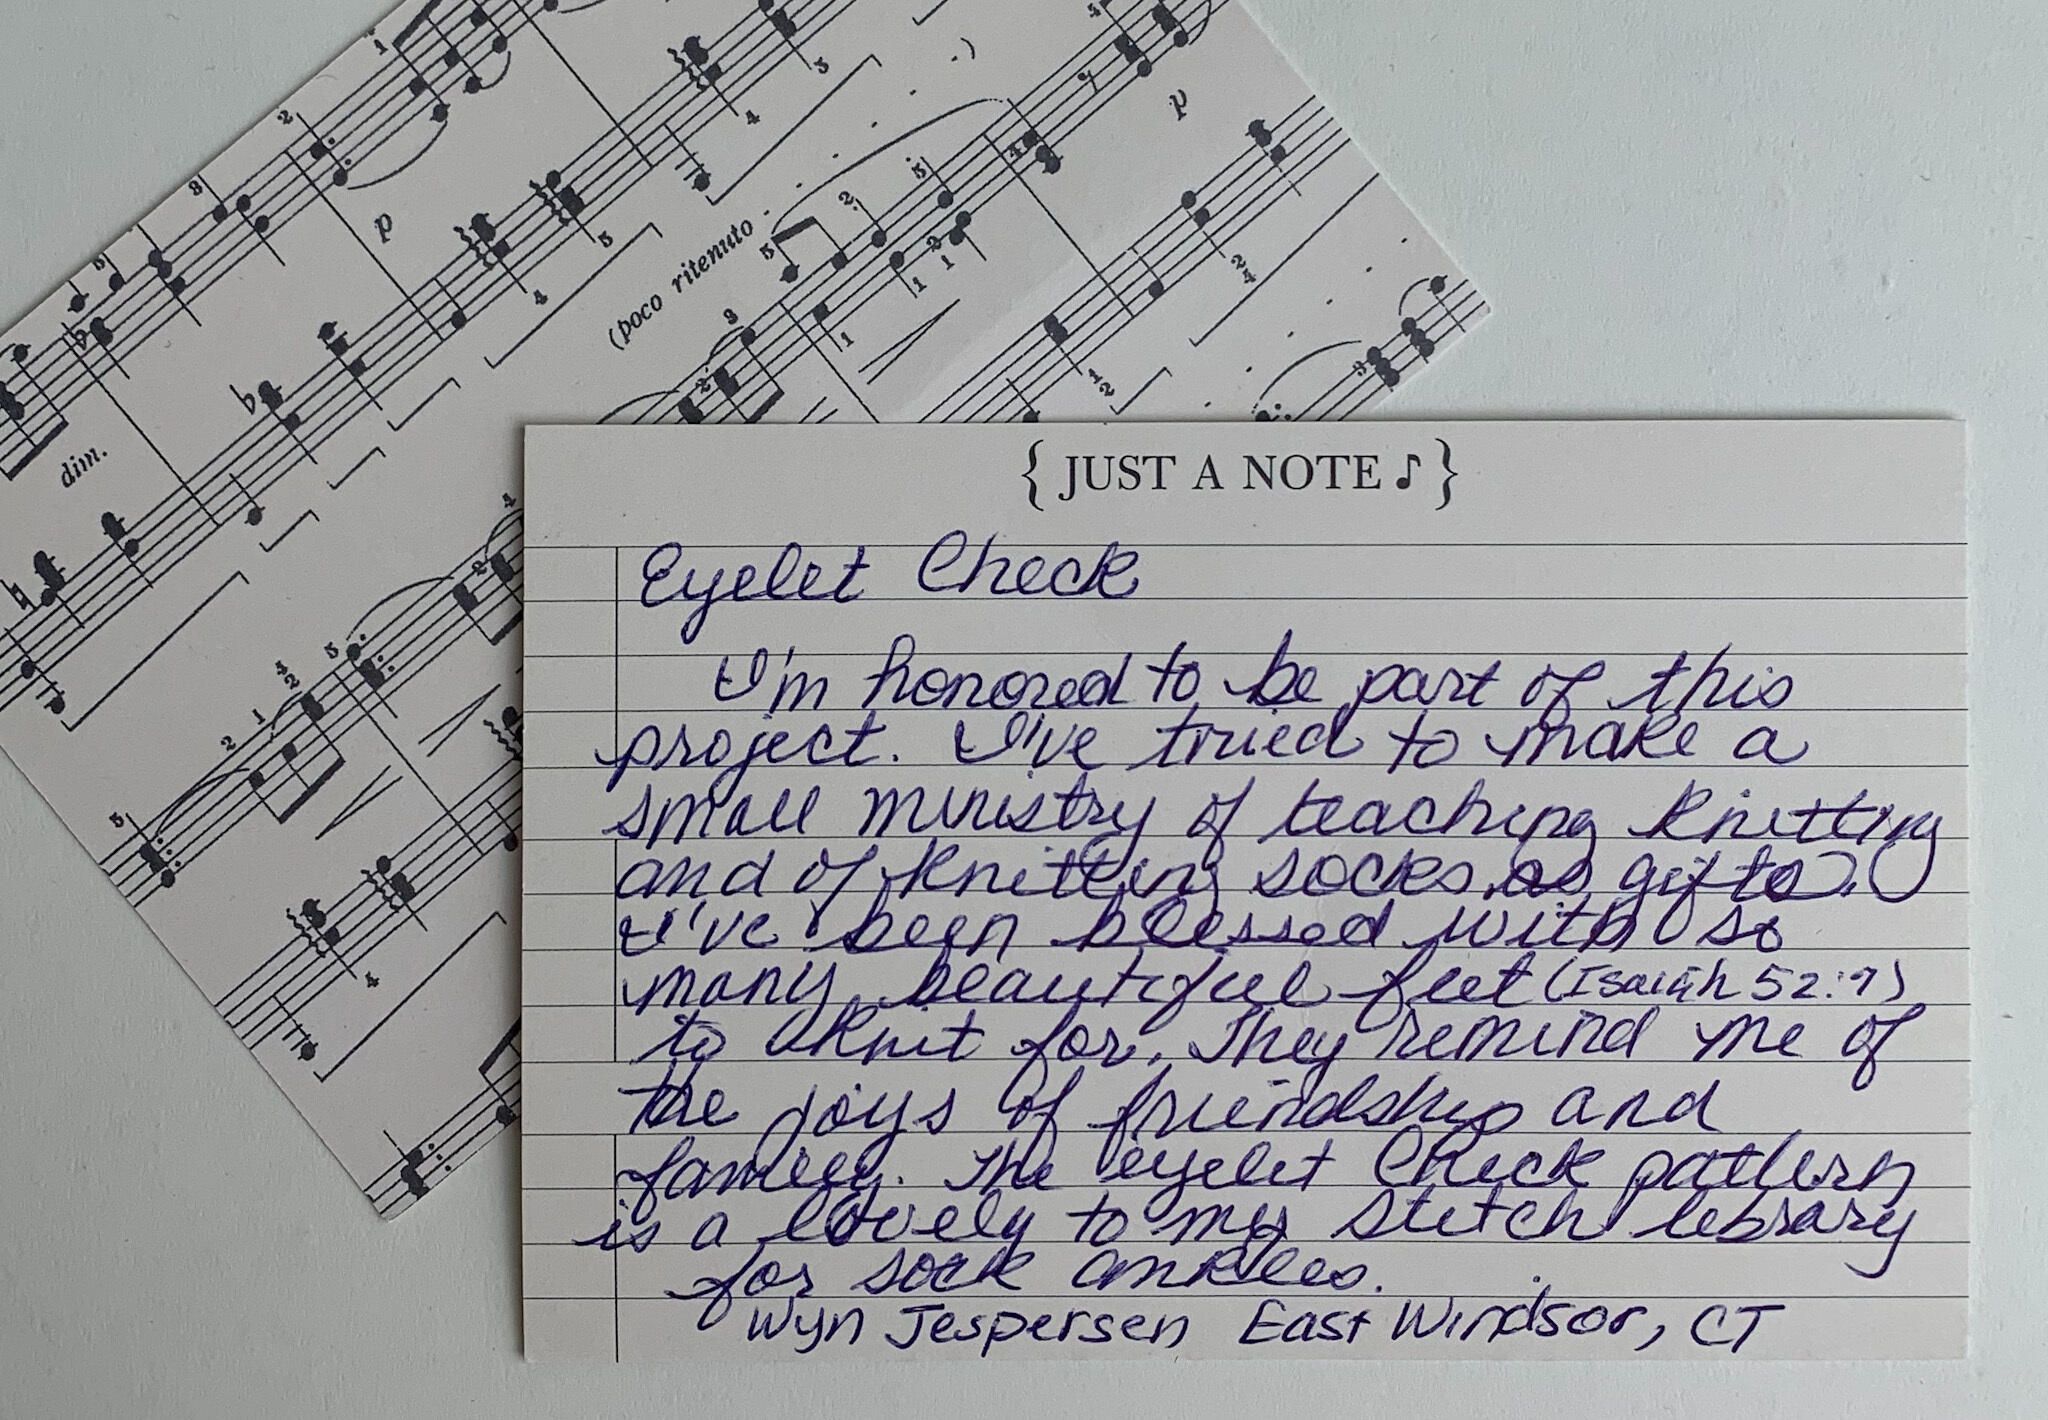 dim.
p
(poco ritenuto
p
{ JUST A NOTE ♪ }
Eyelet Check
I'm honored to be part of this
project. I've tried to make a
small ministry of teaching knitting
and of knitting socks as gifts.
I've been blessed with so
many beautiful feet (Isaiah 52:7)
to knit for. They remind me of
the joys of friendship and
family. The eyelet Check pattern
is a lovely to my stitch library
for sock ankles.
Wyn Jespersen East Windsor, CT